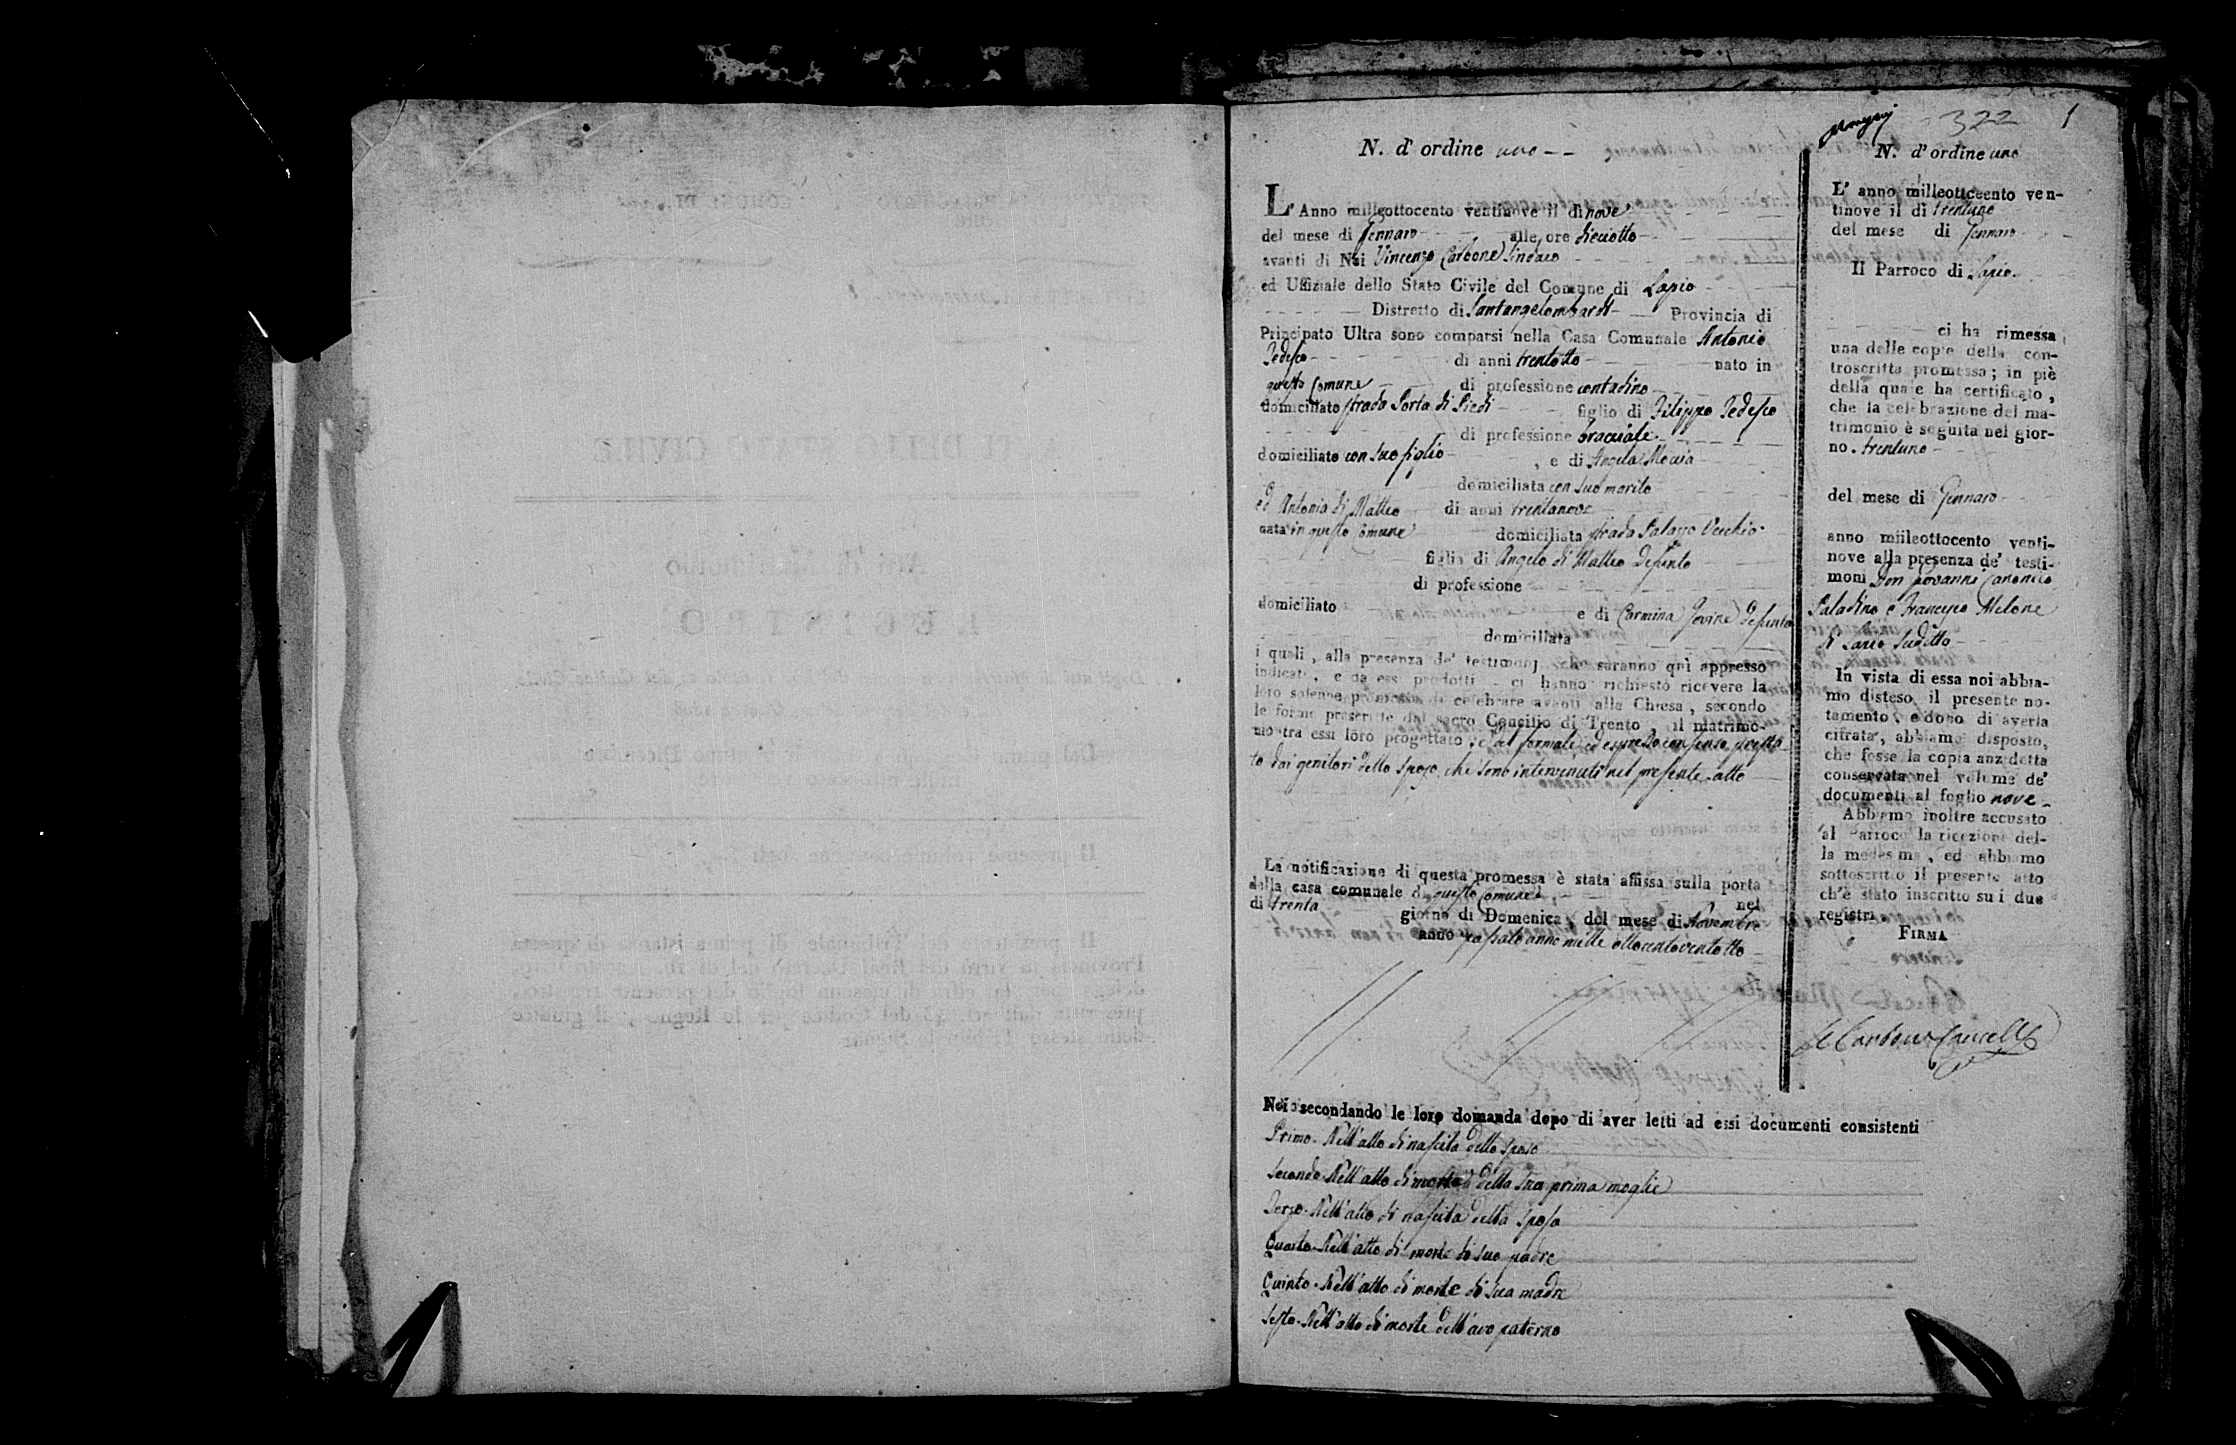 322 1
N. d' ordine uno
L' Anno milleottocento ventinove il dì nove
del mese di Gennaro alle ore dieciotto
avanti di Noi Vincenzo Carbone Sindaco
ed Uffiziale dello Stato Civile del Comune di Lapio
Distretto di Santangelombardi Provincia di
Principato Ultra sono comparsi nella Casa Comunale Antonio
Tedesco di anni trentotto nato in
questo Comune di professione contadino
domiciliato strada Porta di Piedi figlio di Filippo Tedesco
di professione bracciale
domiciliato con suo figlio , e di Angela
domiciliata con suo marito
ed Antonia di Matteo di anni trentanove
nata in questo Comune domiciliata strada Palazzo Vecchio
figlia di Angelo di Matteo defunto
di professione
domiciliato e di Carmina Jovine defunta
domiciliata
i quali , alla presenza de' testimonj , che saranno quì appresso
indicati , e da essi prodotti ci hanno richiesto ricevere la
loro solenne promessa di celebrare avanti alla Chiesa , secondo
le forme prescritte dal sacro Concilio di Trento , il matrimo-
nio tra essi loro progettato ; col formale ed espresso consenso presta-
to dai genitori dello sposo che sono intervenuti nel presente atto
La notificazione di questa promessa è stata affissa sulla porta
della casa comunale di questo Comune , nel
dì trenta giorno di Domenica del mese di Novembre
anno passato anno mille ottocentoventotto
N. d' ordine uno
L' anno milleottceento ven-
tinove il dì trentuno
del mese di Gennaro
Il Parroco di Lapio
ci ha rimessa
una delle copie della con-
troscritta promessa ; in piè
della quale ha certificato ,
che la celebrazione del ma-
trimonio è seguita nel gior-
no trentuno
del mese di Gennaro
anno miileottocento venti-
nove alla presenza de' testi-
moni Don Giovanni Canonico
Paladino e Francesco Melone
di Lapio suddetto
In vista di essa noi abbia-
mo disteso il presente no-
tamento , e dopo di averla
cifrata , abbiamo disposto,
che fosse la copia anzidetta
conservata nel volume de'
documenti al foglio nove
Abbiamo inoltre accusato
al Parroco la ricezione del-
la medesima , ed abbiamo
sottoscritto il presente atto
ch'è stato inscritto su i due
registri
FIRMA
Carbone
Noi secondando le loro domanda dopo di aver letti ad essi documenti consistenti
Primo. Nell'atto di nascita dello sposo
Secondo. Nell'atto di morte della sua prima moglie
Terzo. Nell'atto di nascita della sposa
Quarto. Nell'atto di morte di suo padre
Quinto. Nell'atto di morte di sua madre
Sesto. Nell'atto di morte dell'avo paterno